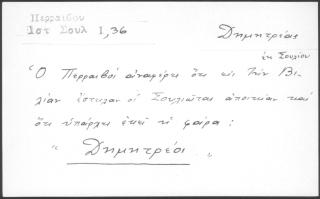 Περραιβου
Ιστ Σουλ Ι,36
Δημητρέας
ἐκ Σουλίου
"Ο Περραιβός ἀναφέρει ὅτι εἰς τὴν Βι-
λίαν ἔστειλαν οἱ Σουλιῶται ἀποικίαν καὶ
ὅτι ὑπάρχει ἐκεῖ ἡ φάρα:
" Δημητρέοι "